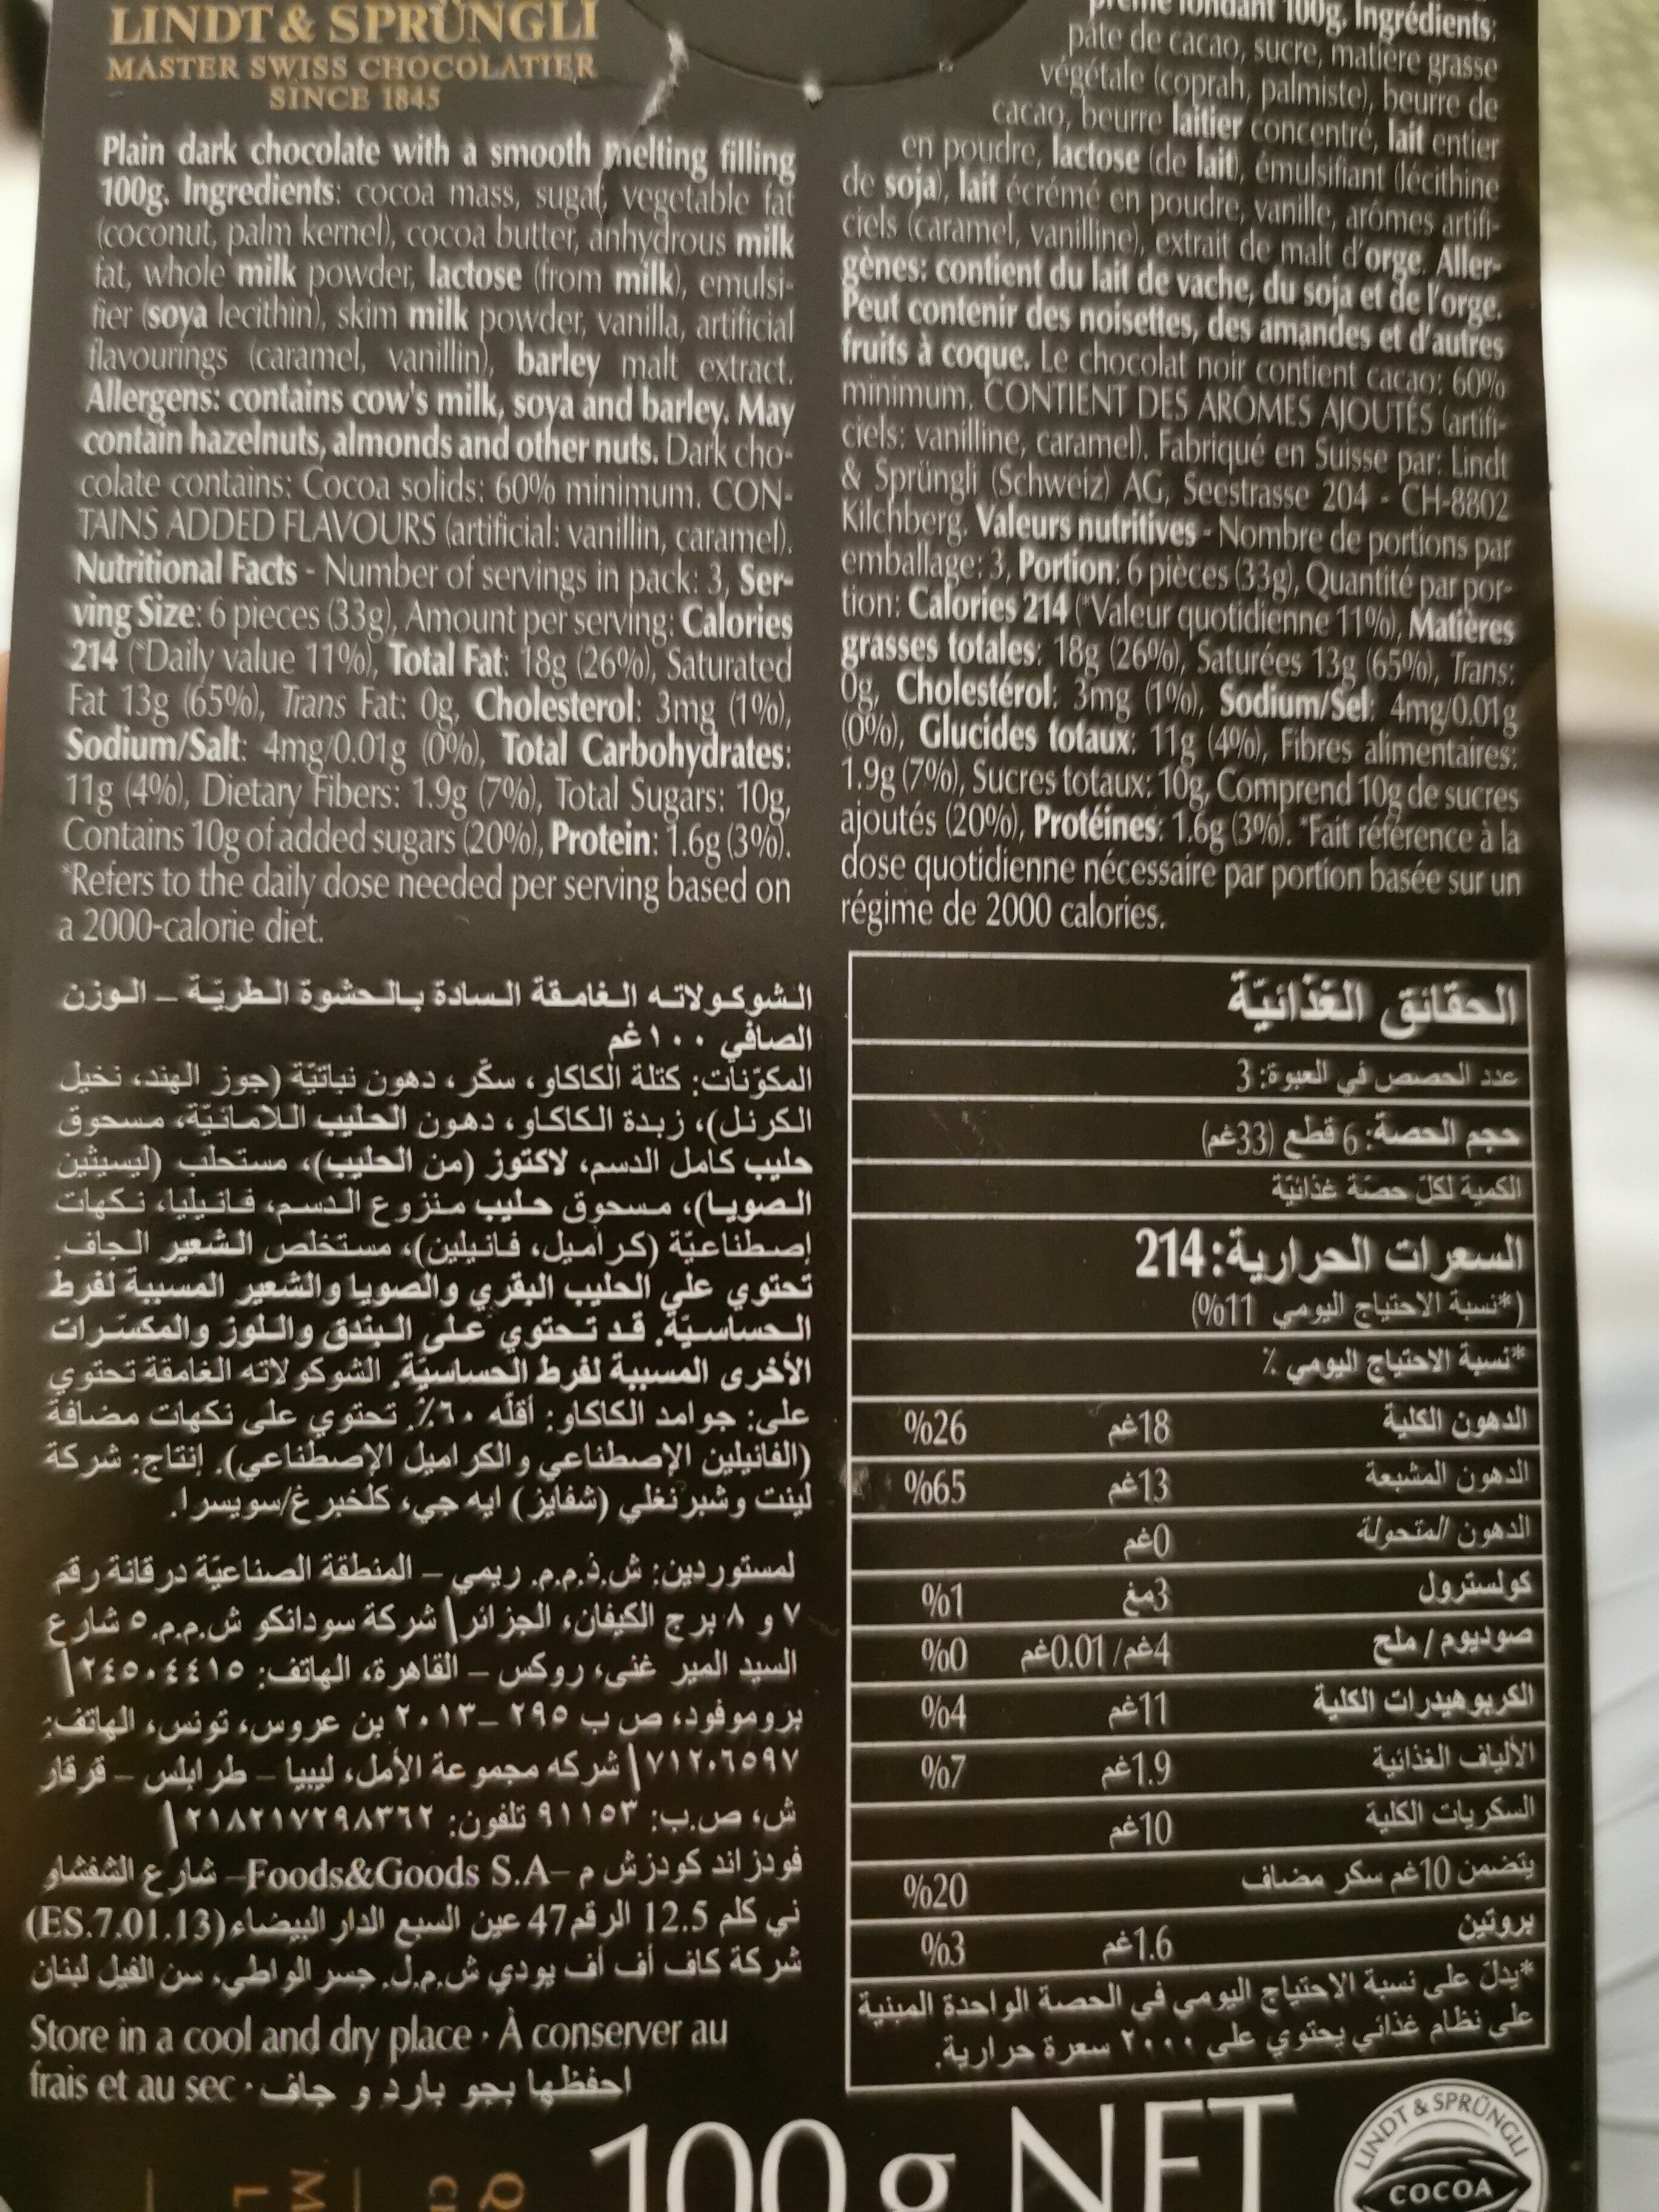 LINDT & SPRÜNGLI
MASTER SWISS CHOCOLATIER
SINCE 1845
Plain dark chocolate with a smooth melting filling
100g. Ingredients: cocoa mass, sugar, vegetable fat
(coconut, palm kernel), cocoa butter, anhydrous milk
fat, whole milk powder, lactose (from milk), emulsi-
fier (soya lecithin), skim milk powder, vanilla, artificial
flavourings (caramel, vanillin), barley malt extract.
Allergens: contains cow's milk, soya and barley. May
contain hazelnuts, almonds and other nuts. Dark cho-
colate contains: Cocoa solids: 60% minimum. CON-
TAINS ADDED FLAVOURS (artificial: vanillin, caramel).
Nutritional Facts - Number of servings in pack: 3, Ser-
ving Size: 6 pieces (33g), Amount per serving: Calories
214 (*Daily value 11%), Total Fat: 18g (26%), Saturated
Fat 13g (65%), Trans Fat: 0g, Cholesterol: 3mg (1%),
Sodium/Salt: 4mg/0.01g (0%), Total Carbohydrates:
11g (4%), Dietary Fibers: 1.9g (7%), Total Sugars: 10g,
Contains 10g of added sugars (20%), Protein: 1.6g (3%).
*Refers to the daily dose needed per serving based on
a 2000-calorie diet.
fondant 100g. Ingrédients:
pâte de cacao, sucre, matière grasse
végétale (coprah, palmiste), beurre de
cacao, beurre laitier concentré, lait entier
en poudre, lactose (de lait), émulsifiant (lécithine
de soja), lait écrémé en poudre, vanille, arômes artifi-
ciels (caramel, vanilline), extrait de malt d'orge. Aller-
gènes: contient du lait de vache, du soja et de l'orge.
Peut contenir des noisettes, des amandes et d'autres
fruits à coque. Le chocolat noir contient cacao: 60%
minimum. CONTIENT DES ARÔMES AJOUTÉS (artifi-
ciels: vanilline, caramel). Fabriqué en Suisse par: Lindt
& Sprüngli (Schweiz) AG, Seestrasse 204 - CH-8802
Kilchberg. Valeurs nutritives - Nombre de portions par
emballage: 3, Portion: 6 pièces (33g), Quantité par por-
tion: Calories 214 (*Valeur quotidienne 11%), Matières
grasses totales: 18g (26%), Saturées 13g (65%), Trans:
0g, Cholestérol: 3mg (1%), Sodium/Sel: 4mg/0.01g
(0%), Glucides totaux: 11g (4%), Fibres alimentaires:
1.9g (7%), Sucres totaux: 10g, Comprend 10g de sucres
ajoutés (20%), Protéines: 1.6g (3%). *Fait référence à la
dose quotidienne nécessaire par portion basée sur un
régime de 2000 calories.
الشوكولاته الغامقة السادة بالحشوة الطريّة – الوزن
الصافي ١٠٠غم
المكوّنات: كتلة الكاكاو، سكّر، دهون نباتيّة (جوز الهند، نخيل
الكرنل)، زبدة الكاكاو، دهون الحليب اللامائيّة، مسحوق
حليب كامل الدسم، لاكتوز (من الحليب)، مستحلب (ليسيثين
الصويا)، مسحوق حليب منزوع الدسم، فانيليا، نكهات
إصطناعيّة (كراميل، فانيلين)، مستخلص الشعير الجاف.
تحتوي على الحليب البقري والصويا والشعير المسببة لفرط
الحساسيّة. قد تحتوي على البندق واللوز والمكسّرات
الأخرى المسببة لفرط الحساسيّة. الشوكولاته الغامقة تحتوي
على: جوامد الكاكاو: أقلّه ٦٠٪. تحتوي على نكهات مضافة
(الفانيلين الإصطناعي والكراميل الإصطناعي). إنتاج: شركة
لينت وشبرنغلي (شفايز) ايه جي، كلخبرغ/سويسرا.
لمستوردين: ش.ذ.م.م. ريمي – المنطقة الصناعيّة درقانة رقم
٧ و ٨ برج الكيفان، الجزائر| شركة سودانكو ش.م.م. ٥ شارع
السيد المير غنى، روكس – القاهرة، الهاتف: ٢٤٥٠٤٤١٥|
بروموفود، ص ب ٢٩٥ –٢٠١٣ بن عروس، تونس، الهاتف:
٧١٢٠٦٥٩٧| شركه مجموعة الأمل، ليبيا – طرابلس – قرقار
ش، ص.ب: ٩١١٥٣ تلفون: ٢١٨٢١٧٢٩٨٣٦٢|
فودز اند كودز ش م –Foods&Goods S.A– شارع الشفشاو
ني كلم 12.5 الرقم47 عين السبع الدار البيضاء(ES.7.01.13)
شركة كاف أف أف يودي ش.م.ل. جسر الواطي، سن الفيل لبنان
Store in a cool and dry place · À conserver au
frais et au sec · احفظها بجو بارد و جاف
الحقائق الغذائيّة
عدد الحصص في العبوة: 3
حجم الحصة: 6 قطع (33غم)
الكمية لكلّ حصّة غذائيّة
السعرات الحرارية: 214
(*نسبة الاحتياج اليومي 11%)
*نسبة الاحتياج اليومي ٪
الدهون الكلية 18غم %26
الدهون المشبعة 13غم %65
الدهون المتحولة 0غم
كولسترول 3مغ %1
صوديوم / ملح 4غم/ 0.01غم %0
الكربوهيدرات الكلية 11غم %4
الألياف الغذائية 1.9غم %7
السكريات الكلية 10غم
يتضمن 10غم سكر مضاف %20
بروتين 1.6غم %3
*يدلّ على نسبة الاحتياج اليومي في الحصة الواحدة المبنية
على نظام غذائي يحتوي على ٢٠٠٠ سعرة حرارية.
100 g NET
LINDT & SPRÜNGLI
COCOA